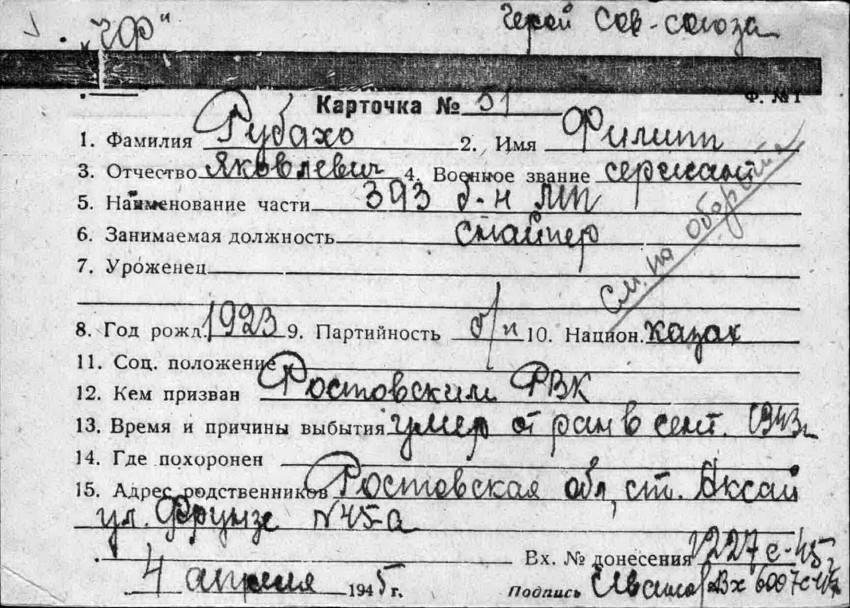 "ЧФ"
Герой Сов-союза
Ф. №1
Карточка № 51
1. Фамилия Рубахо 2. Имя Филипп
3. Отчество Яковлевич 4. Военное звание сержант
5. Наименование части 393 б-н МП
6. Занимаемая должность снайпер
7. Уроженец
См. на обороте
8. Год рожд. 1923 9. Партийность б/п 10. Национ. казак
11. Соц. положение
12. Кем призван Ростовским РВК
13. Время и причины выбытия умер от ран в сент. 1943г
14. Где похоронен
15. Адрес родственников Ростовская обл, ст. Аксай
ул. Фрунзе N45-а
Вх. № донесения 1227с-45г
4 апреля 1945г. Подпись